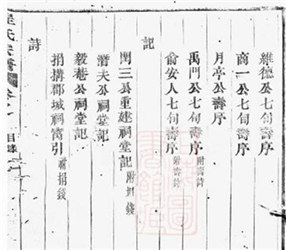 維德公七旬壽序
商一公七旬壽序
月亭公壽序
禹門公七旬壽序 附壽詩
俞安人七旬壽序 附壽詩
記
閏三公重建祠堂記 附捐錢
潛夫公祠堂記
毅菴公祠堂記
捐搆郡城祠寓引 附捐錢
詩
氏宗譜
目錄